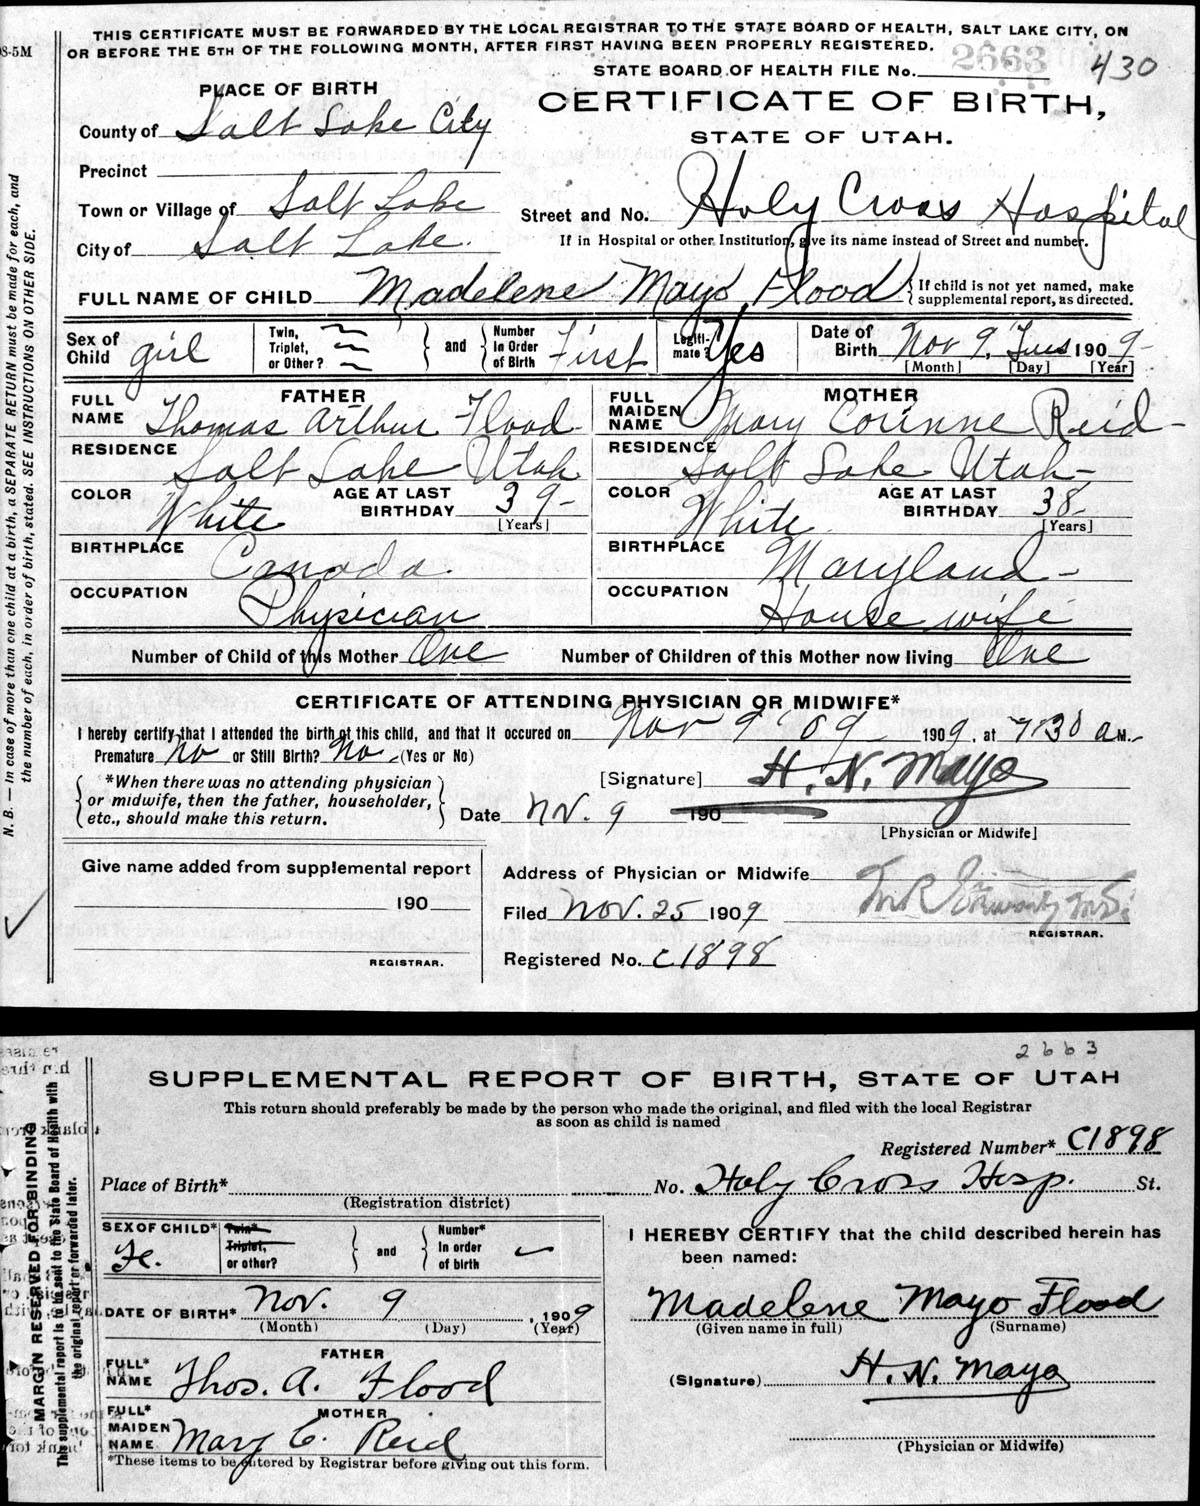 08-5M
THIS CERTIFICATE MUST BE FORWARDED BY THE LOCAL REGISTRAR TO THE STATE BOARD OF HEALTH, SALT LAKE CITY, ON
OR BEFORE THE 5TH OF THE FOLLOWING MONTH, AFTER FIRST HAVING BEEN PROPERLY REGISTERED.
STATE BOARD OF HEALTH FILE No. 2663 430
PLACE OF BIRTH
CERTIFICATE OF BIRTH,
STATE OF UTAH.
County of Salt Lake City
Precinct
Town or Village of Salt Lake
Street and No. Holy Cross Hospital
City of Salt Lake.
If in Hospital or other Institution, give its name instead of Street and number.
FULL NAME OF CHILD Madelene Mayo Flood
{If child is not yet named, make
supplemental report, as directed.
Sex of Child girl
Twin, Triplet, or Other?
and
Number In Order of Birth First
Legiti-mate? Yes
Date of Birth Nov 9. Tues 1909-
[Month] [Day] [Year]
FATHER
FULL NAME Thomas Arthur Flood
RESIDENCE Salt Lake Utah
COLOR White
AGE AT LAST BIRTHDAY 39-
[Years]
BIRTHPLACE Canada.
OCCUPATION Physician
MOTHER
FULL MAIDEN NAME Mary Corinne Reid-
RESIDENCE Salt Lake Utah-
COLOR White
AGE AT LAST BIRTHDAY 38-
[Years]
BIRTHPLACE Maryland-
OCCUPATION House wife
Number of Child of this Mother One
Number of Children of this Mother now living One
CERTIFICATE OF ATTENDING PHYSICIAN OR MIDWIFE*
I hereby certify that I attended the birth of this child, and that it occured on Nov 9 '09 1909, at 7:30 a M.
Premature No or Still Birth? No (Yes or No)
*When there was no attending physician
or midwife, then the father, householder,
etc., should make this return.
[Signature] H. N. Mayo
Date Nov. 9 190
[Physician or Midwife]
Give name added from supplemental report
190
REGISTRAR.
Address of Physician or Midwife
Filed Nov. 25 1909
REGISTRAR.
Registered No. C1898
N. B. — In case of more than one child at a birth, a SEPARATE RETURN must be made for each, and
the number of each, in order of birth, stated. SEE INSTRUCTIONS ON OTHER SIDE.
2663
SUPPLEMENTAL REPORT OF BIRTH, STATE OF UTAH
This return should preferably be made by the person who made the original, and filed with the local Registrar
as soon as child is named
Registered Number* C1898
Place of Birth* No. Holy Cross Hosp. St.
(Registration district)
SEX OF CHILD* Fe.
Twin* Triplet, or other?
and
Number* In order of birth
I HEREBY CERTIFY that the child described herein has
been named:
DATE OF BIRTH* Nov. 9, 1909
(Month) (Day) (Year)
Madelene Mayo Flood
(Given name in full) (Surname)
FATHER
FULL* NAME Thos. A. Flood
(Signature) H. N. Mayo
MOTHER
FULL* MAIDEN NAME Mary C. Reid
(Physician or Midwife)
*These items to be entered by Registrar before giving out this form.
MARGIN RESERVED FOR BINDING
This supplemental report is to be sent to the State Board of Health with
the original report or forwarded later.